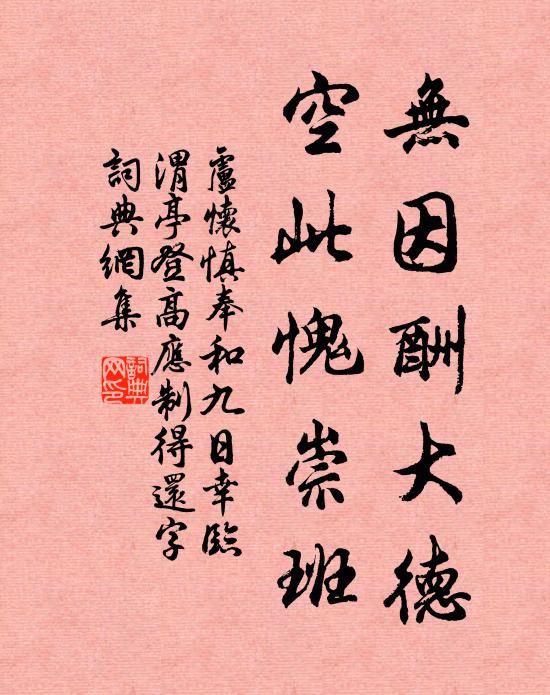 無因酬大德
空此愧崇班
盧懷慎奉和九日幸臨
渭亭登高應制得還字
詞典網集
詞典
网印